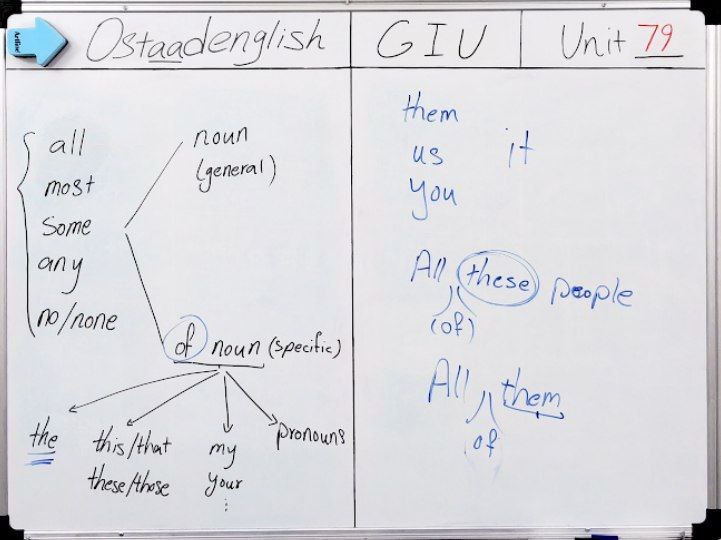 Artline
Ostaadenglish
GIU
Unit 79
all
most
some
any
no/none
noun
(general)
of noun (specific)
the
this/that
these/those
my
your
pronouns
them
us
you
it
All these people
(of)
All them
of